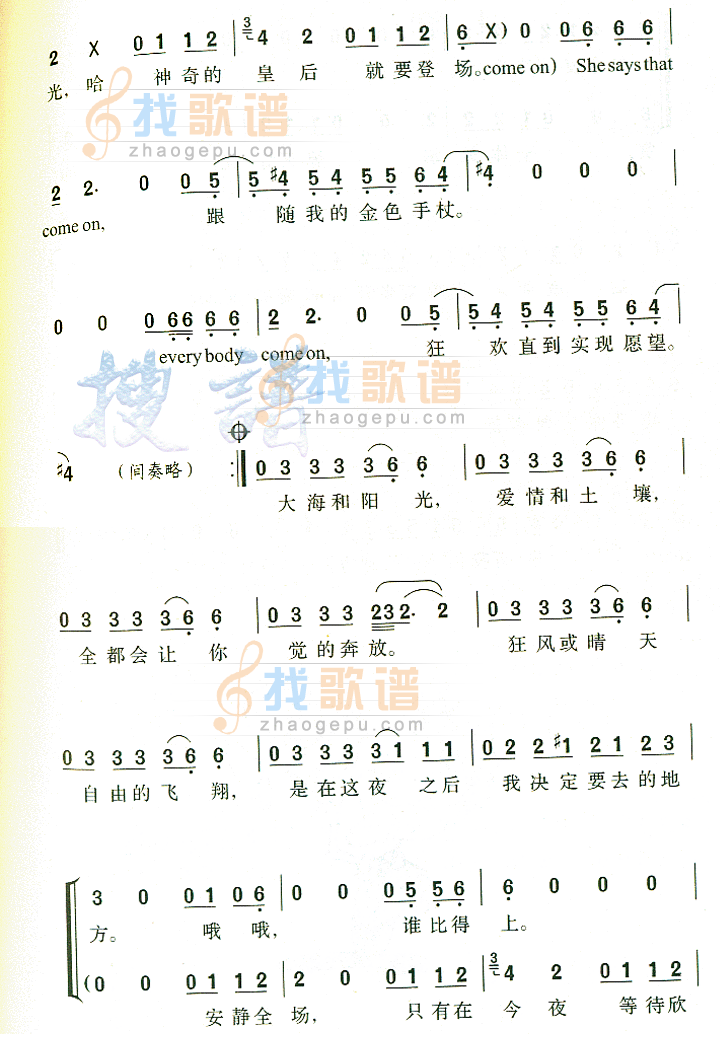 2 X 0 1 1 2 | 4 2 0 1 1 2 | 6 X) 0 0 6 6 6 |
光, 哈 神奇的 皇 后 就要登 场。come on) She says that
找歌谱
zhaogepu.com
2 2· 0 0 5 | 5 #4 5 4 5 5 6 4 | #4 0 0 0 |
come on, 跟 随我的金色手杖。
0 0 0 6 6 6 6 | 2 2· 0 0 5 | 5 4 5 4 5 5 6 4 |
everybody come on, 狂 欢直到实现愿望。
搜谱
找歌谱
zhaogepu.com
#4 (间奏略) :‖ 0 3 3 3 3 6 6 | 0 3 3 3 3 6 6 |
大海和阳 光, 爱情和土 壤,
0 3 3 3 3 6 6 | 0 3 3 3 2 3 2· 2 | 0 3 3 3 3 6 6 |
全都会让 你 觉的奔放。 狂风或晴 天
找歌谱
zhaogepu.com
0 3 3 3 3 6 6 | 0 3 3 3 3 1 1 1 | 0 2 2 #1 2 1 2 3 |
自由的飞 翔, 是在这夜 之后 我决定要去的地
3 0 0 1 0 6 | 0 0 0 5 5 6 | 6 0 0 0 |
方。 哦 哦, 谁比得 上。
(0 0 0 1 1 2 | 2 0 0 1 1 2 | 4 2 0 1 1 2 |
安静全 场, 只有在 今 夜 等待欣